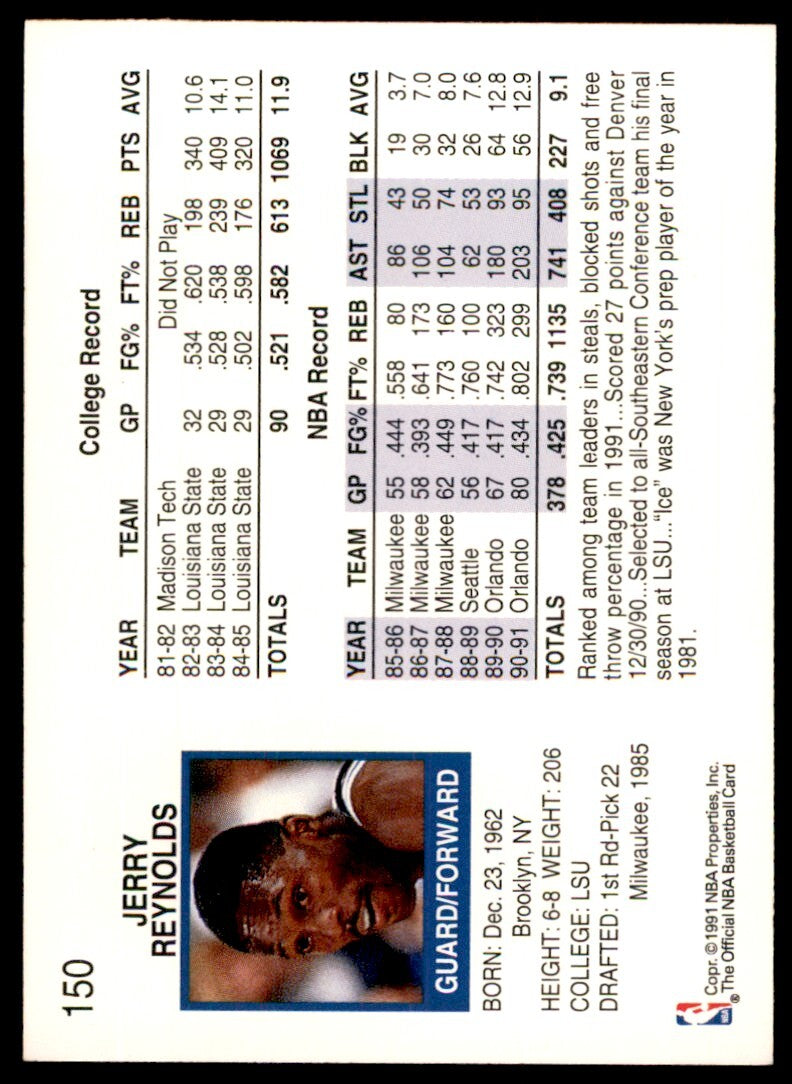 150
JERRY
REYNOLDS
GUARD/FORWARD
BORN: Dec. 23, 1962
Brooklyn, NY
HEIGHT: 6-8 WEIGHT: 206
COLLEGE: LSU
DRAFTED: 1st Rd-Pick 22
Milwaukee, 1985
NBA
® Copr. ©1991 NBA Properties, Inc.
The Official NBA Basketball Card
College Record
YEAR TEAM GP FG% FT% REB PTS AVG
81-82 Madison Tech Did Not Play
82-83 Louisiana State 32 .534 .620 198 340 10.6
83-84 Louisiana State 29 .528 .538 239 409 14.1
84-85 Louisiana State 29 .502 .598 176 320 11.0
TOTALS 90 .521 .582 613 1069 11.9
NBA Record
YEAR TEAM GP FG% FT% REB AST STL BLK AVG
85-86 Milwaukee 55 .444 .558 80 86 43 19 3.7
86-87 Milwaukee 58 .393 .641 173 106 50 30 7.0
87-88 Milwaukee 62 .449 .773 160 104 74 32 8.0
88-89 Seattle 56 .417 .760 100 62 53 26 7.6
89-90 Orlando 67 .417 .742 323 180 93 64 12.8
90-91 Orlando 80 .434 .802 299 203 95 56 12.9
TOTALS 378 .425 .739 1135 741 408 227 9.1
Ranked among team leaders in steals, blocked shots and free
throw percentage in 1991...Scored 27 points against Denver
12/30/90...Selected to all-Southeastern Conference team his final
season at LSU..."Ice" was New York's prep player of the year in
1981.